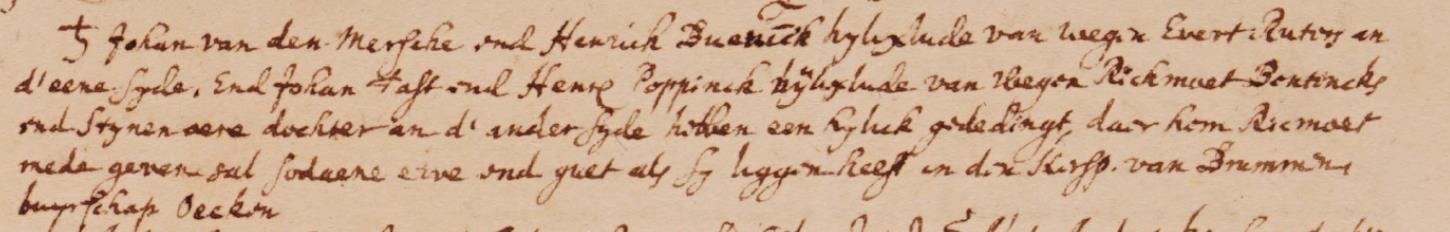 Johan van den Mersche ond Henrick Buerick hylixlude van wegen Evert Ruters an
d'eene syde, End Johan Tast ond Henr Poppinck hylixlude van wegen Richmoet Bentincks
ond Stynen oere dochter an d' ander syde hebben een hylick gededingt, daer hem Ricmoet
mede geven sal sodaene erve ond guet als sy liggen heeft in den Kersp. van Brummen,
buyrschap Oecken